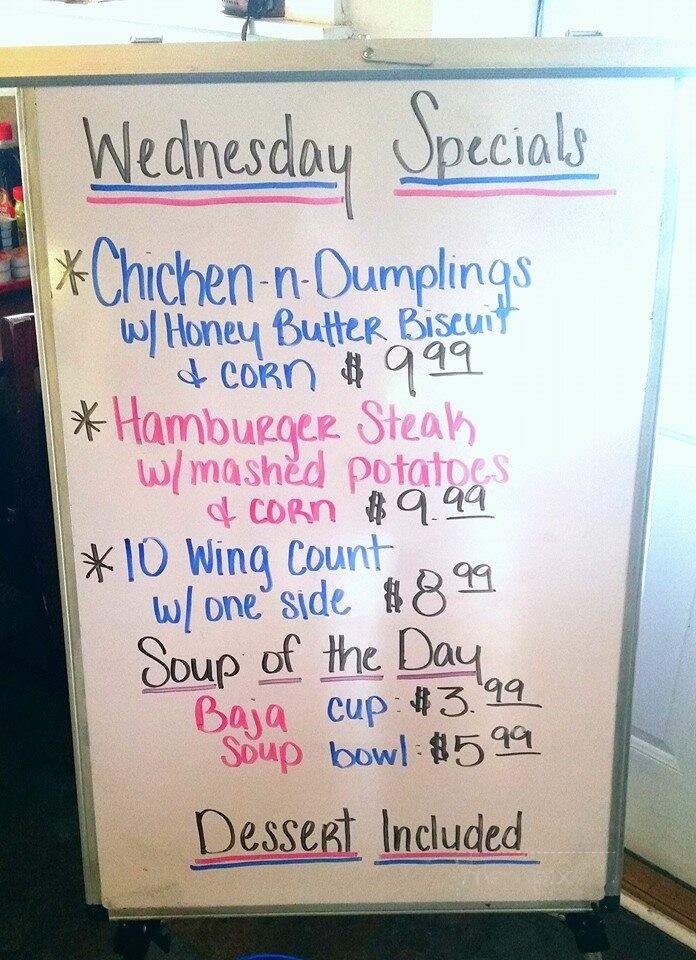 Wednesday Specials
* Chicken-n-Dumplings
w/ Honey Butter Biscuit
& corn $9.99
* Hamburger Steak
w/ mashed potatoes
& corn $9.99
* 10 Wing Count
w/ one side $8.99
Soup of the Day
Baja cup: $3.99
Soup bowl: $5.99
Dessert Included